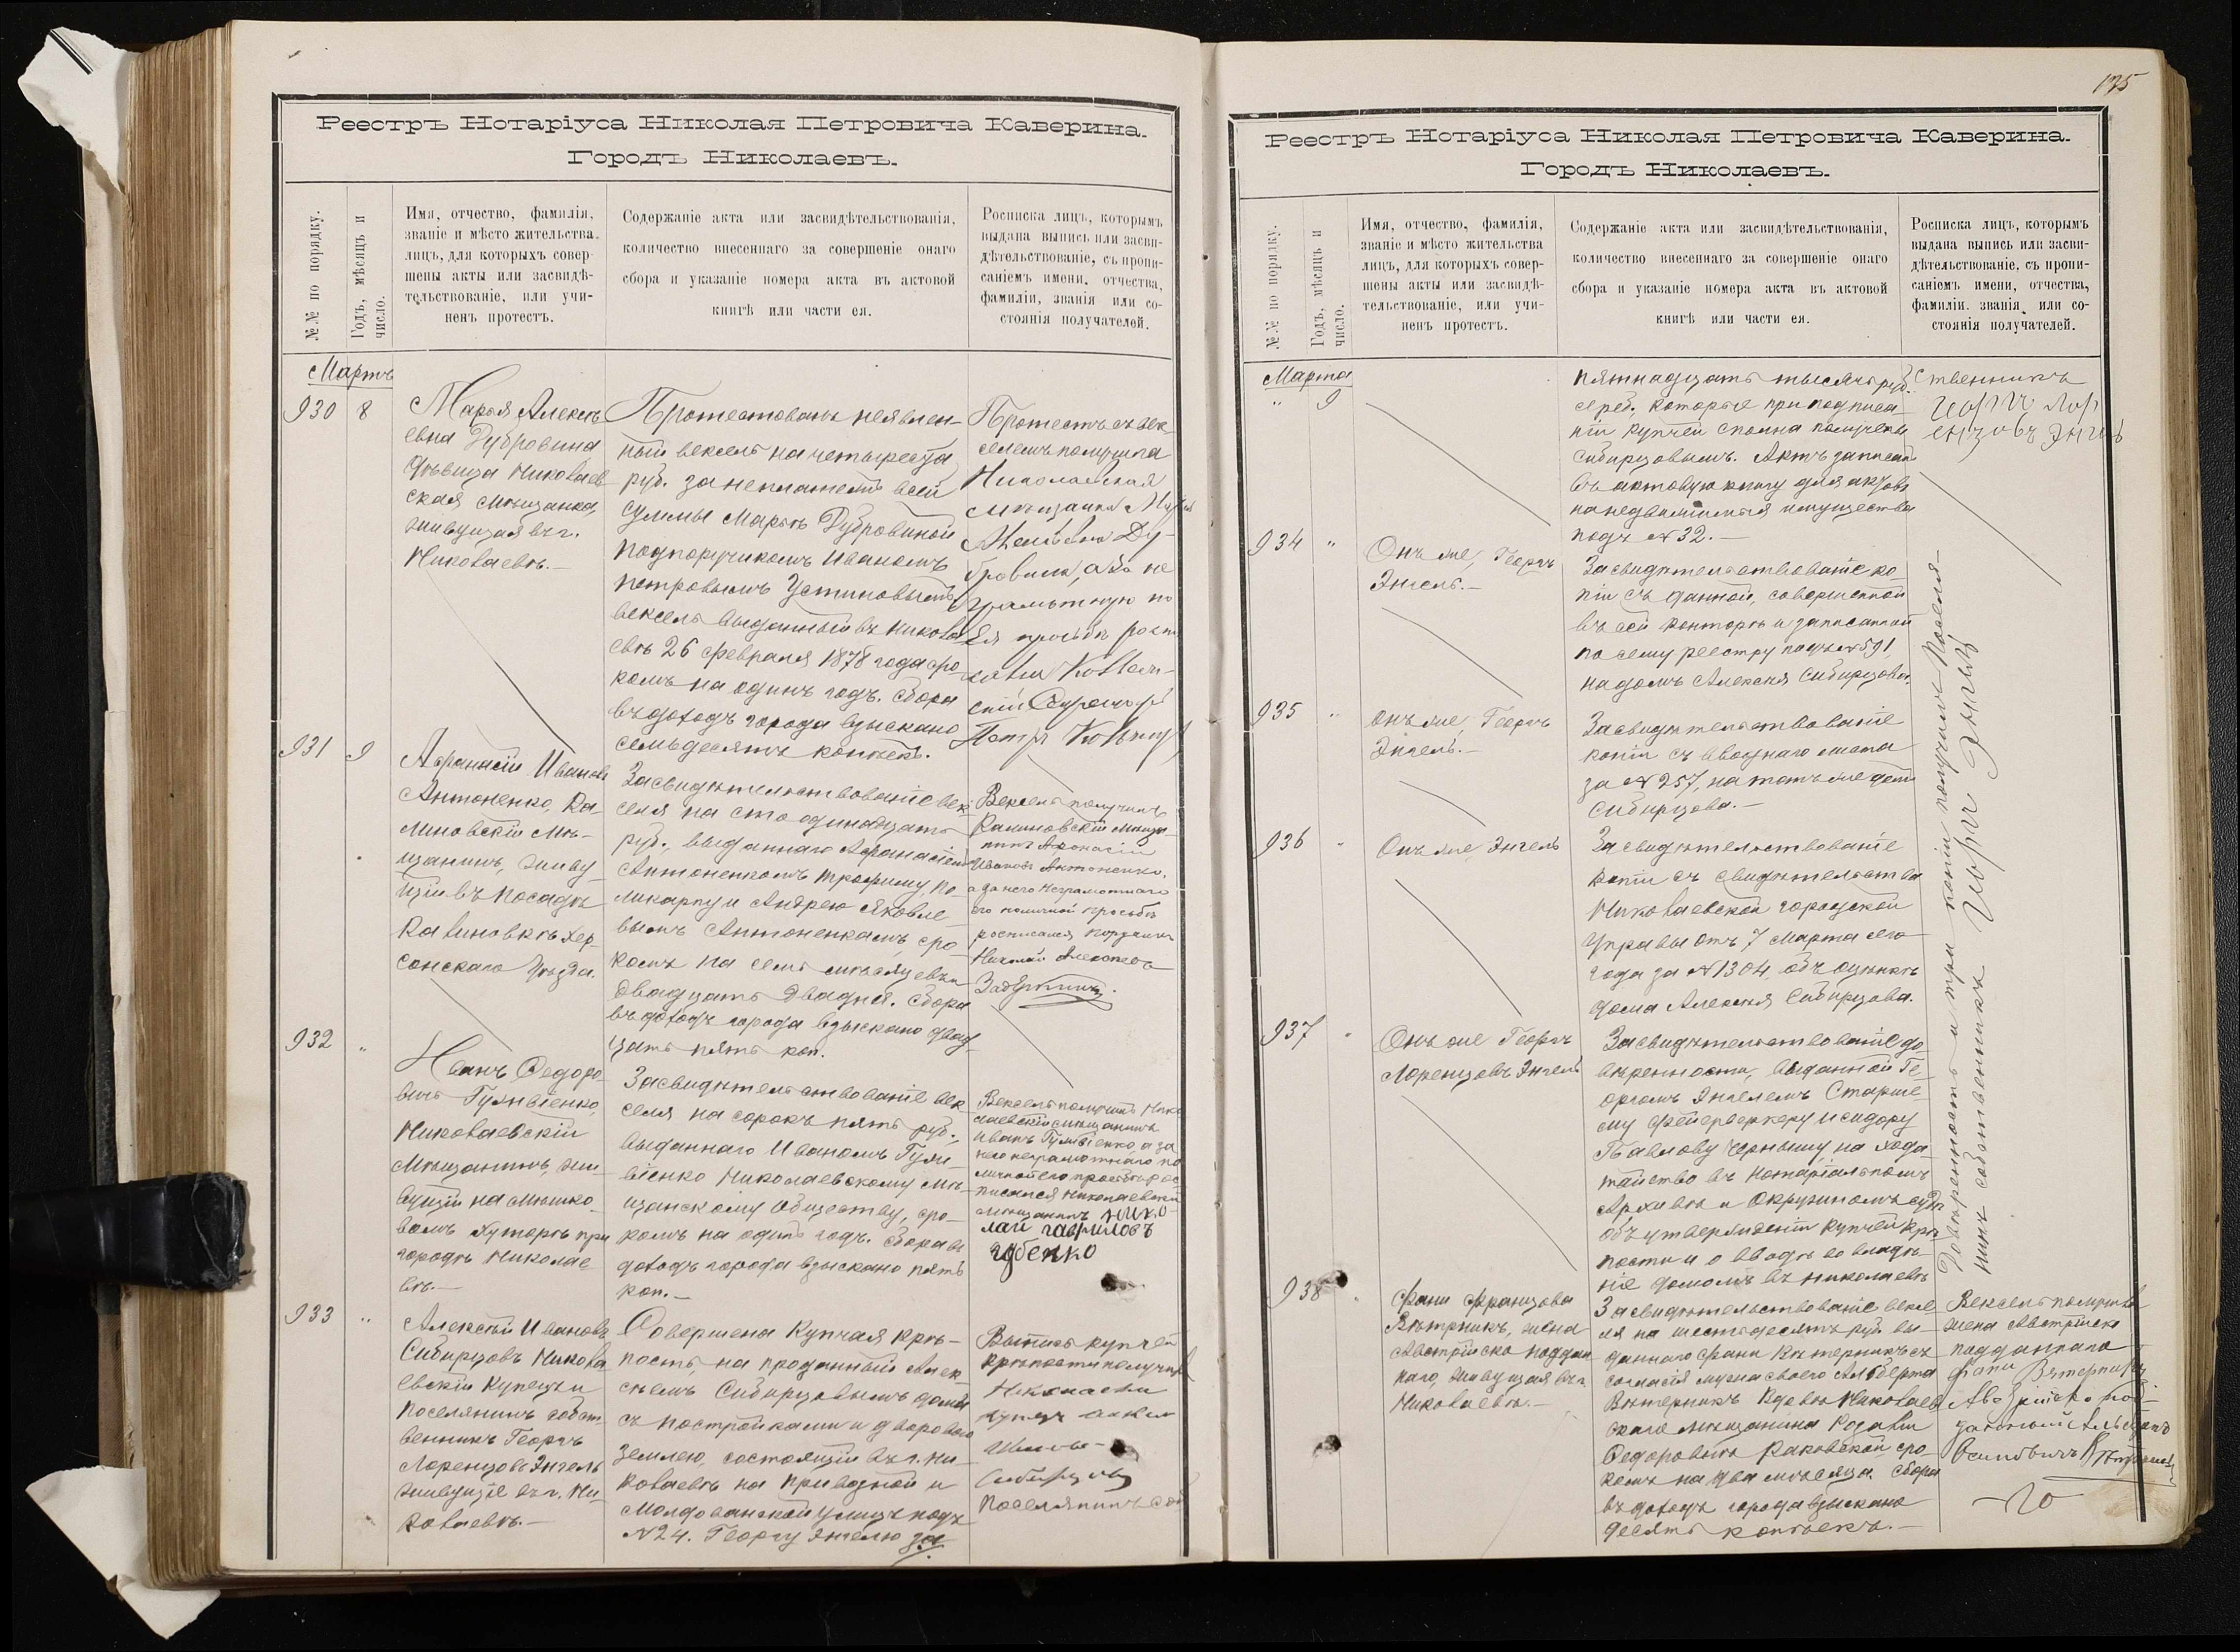 Реестръ Нотаріуса Николая Петровича Каверина.
Городъ Николаевъ.
№№ по порядку.
Годъ, мѣсяцъ и
число.
Имя, отчество, фамилія,
званіе и мѣсто жительства
лицъ, для которыхъ совер-
шены акты или засвидѣ-
тельствованіе, или учи-
ненъ протестъ.
Содержаніе акта или засвидѣтельствованія,
количество внесеннаго за совершеніе онаго
сбора и указаніе номера акта въ актовой
книгѣ или части ея.
Росписка лицъ, которымъ
выдана выпись или засви-
дѣтельствованіе, съ пропи-
саніемъ имени, отчества,
фамиліи, званія или со-
стоянія получателей.
Мартъ
930 8
Марья Алексѣ
евна Дубровина
дѣвица Николаев
ская мѣщанка,
живущая въ г.
Николаевѣ.—
Протестованъ неявлен-
ный вексель на четыреста
руб. за неплатежъ всей
суммы Марьѣ Дубровиной
подпоручикомъ Иваномъ
Петровымъ Устиновымъ,
вексель выданный въ Никола
евѣ 26 февраля 1878 года сро
комъ на одинъ годъ. Сбора
въ доходъ города взыскано
семьдесятъ копѣекъ.
Протестъ съ век-
селемъ получила
Николаевская
мѣщанка Марья
Ду-
бровина, а за не
грамотную по
Ея просьбѣ
Петръ
931 9
Афанасій Ивановъ
Антоненко, Ка-
линовскій мѣ-
щанинъ, живу
щій въ посадѣ
Калиновкѣ Хер-
сонскаго Уѣзда.
Засвидѣтельствованіе век
селя на сто одинадцать
руб., выданнаго Афанасіемъ
Антоненкомъ Трофиму По-
ликарпу и Андрею Яковле
вымъ Антоненкамъ, сро
комъ на семь мѣсяцевъ и
двадцать два дня. Сбора
въ доходъ города взыскано двад
цать пять коп.
Вексель получилъ
Калиновскій мѣща-
нинъ Афонасій
Ивановъ Антоненко,
а за него неграмотнаго
его по личной просьбѣ
росписался
Николай Алексѣевъ
932 "
Иванъ Федоро
вичъ Гулывіенко,
Николаевскій
Мѣщанинъ, жи-
вущій на Мѣшко
вомъ Хуторѣ при
городѣ Николае
вѣ.—
Засвидѣтельствованіе век
селя на сорокъ пять руб.
выданнаго Иваномъ Гулы-
віенко Николаевскому мѣ-
щанскому обществу, сро-
комъ на одинъ годъ. Сбора въ
доходъ города взыскано пять
коп.—
Вексель получилъ Нико
лаевскій мѣщанинъ
Иванъ Гулывіенко, а за
него неграмотнаго по
личной его просьбѣ рос
писался Николаевскій
мѣщанинъ Нико
лай Гавриловъ
Губенко
933 "
Алексѣй Ивановъ
Сибирцовъ Никола
евскій купецъ и
поселянинъ собст
венникъ Георгъ
Лоренцовъ Энгель
живущіе въ г. Ни-
колаевѣ.—
Совершена купчая крѣ-
пость, на проданный Алек
сѣемъ Сибирцовымъ домъ
съ постройками и дворовою
землею, состоящій въ г. Ни
колаевѣ на Привозной и
Молдованской улицѣ подъ
№24. Георгу Энгелю за
Выпись купчей
крѣпости получилъ
Николаевскій
купецъ
Сибирцовъ
поселянинъ соб
175
Реестръ Нотаріуса Николая Петровича Каверина.
Городъ Николаевъ.
№№ по порядку.
Годъ, мѣсяцъ и
число.
Имя, отчество, фамилія,
званіе и мѣсто жительства
лицъ, для которыхъ совер-
шены акты или засвидѣ-
тельствованіе, или учи-
ненъ протестъ.
Содержаніе акта или засвидѣтельствованія,
количество внесеннаго за совершеніе онаго
сбора и указаніе номера акта въ актовой
книгѣ или части ея.
Росписка лицъ, которымъ
выдана выпись или засви-
дѣтельствованіе, съ пропи-
саніемъ имени, отчества,
фамиліи, званія, или со-
стоянія получателей.
Марта
" 9
пятнадцать тысячъ руб.
сереб. которые при подписа
ніи купчей сполна получены
Сибирцовымъ. Актъ записанъ
въ актовую книгу для актовъ
на недвижимыя имущества
подъ №32.—
ственникъ
934 "
Онъ же, Георгъ
Энгель.—
Засвидѣтельствованіе ко-
піи съ данной, совершенной
въ сей конторѣ и записанной
по сему реестру подъ №591
на домъ Алексѣя Сибирцова.
935 "
Онъ же, Георгъ
Энгель.—
Засвидѣтельствованіе
копіи съ вводнаго листа
за №257, на тотъ же домъ
Сибирцова.—
936 "
Онъ же Энгель
Засвидѣтельствованіе
копіи съ свидѣтельства
Николаевской городской
Управы отъ 7 Марта сего
года за №1304 объ оцѣнкѣ
дома Алексѣя Сибирцова.
937 "
Онъ же Георгъ
Лоренцовъ Энгель
Засвидѣтельствованіе до
вѣренности, выданной Ге
оргомъ Энгелемъ Старше
му Фейерверкеру Исидору
Павлову Чернышу на хода
тайство въ Нотаріальномъ
Архивѣ и Окружномъ судѣ
объ утвержденіи купчей крѣ
пости и о вводѣ во владѣ-
ніе домомъ въ Николаевѣ
Довѣренность и три копіи получилъ Поселя-
нинъ собственникъ
938 "
Фани Францова
Вѣтерникъ, жена
Австрійско поддан
наго, живущая въ г.
Николаевѣ.—
Засвидѣтельствованіе вексе
ля на шестьдесятъ руб. вы-
даннаго Фани Вѣтерникъ съ
согласія мужа своего Альберта
Вѣтерникъ вдовѣ Николаев
скаго мѣщанина Розаліи
Федоровнѣ Раковской сро
комъ на два мѣсяца. Сбора
въ доходъ города взыскано
десять копѣекъ.—
Вексель получила
жена Австрійско
подданнаго
Фани Вѣтерникъ